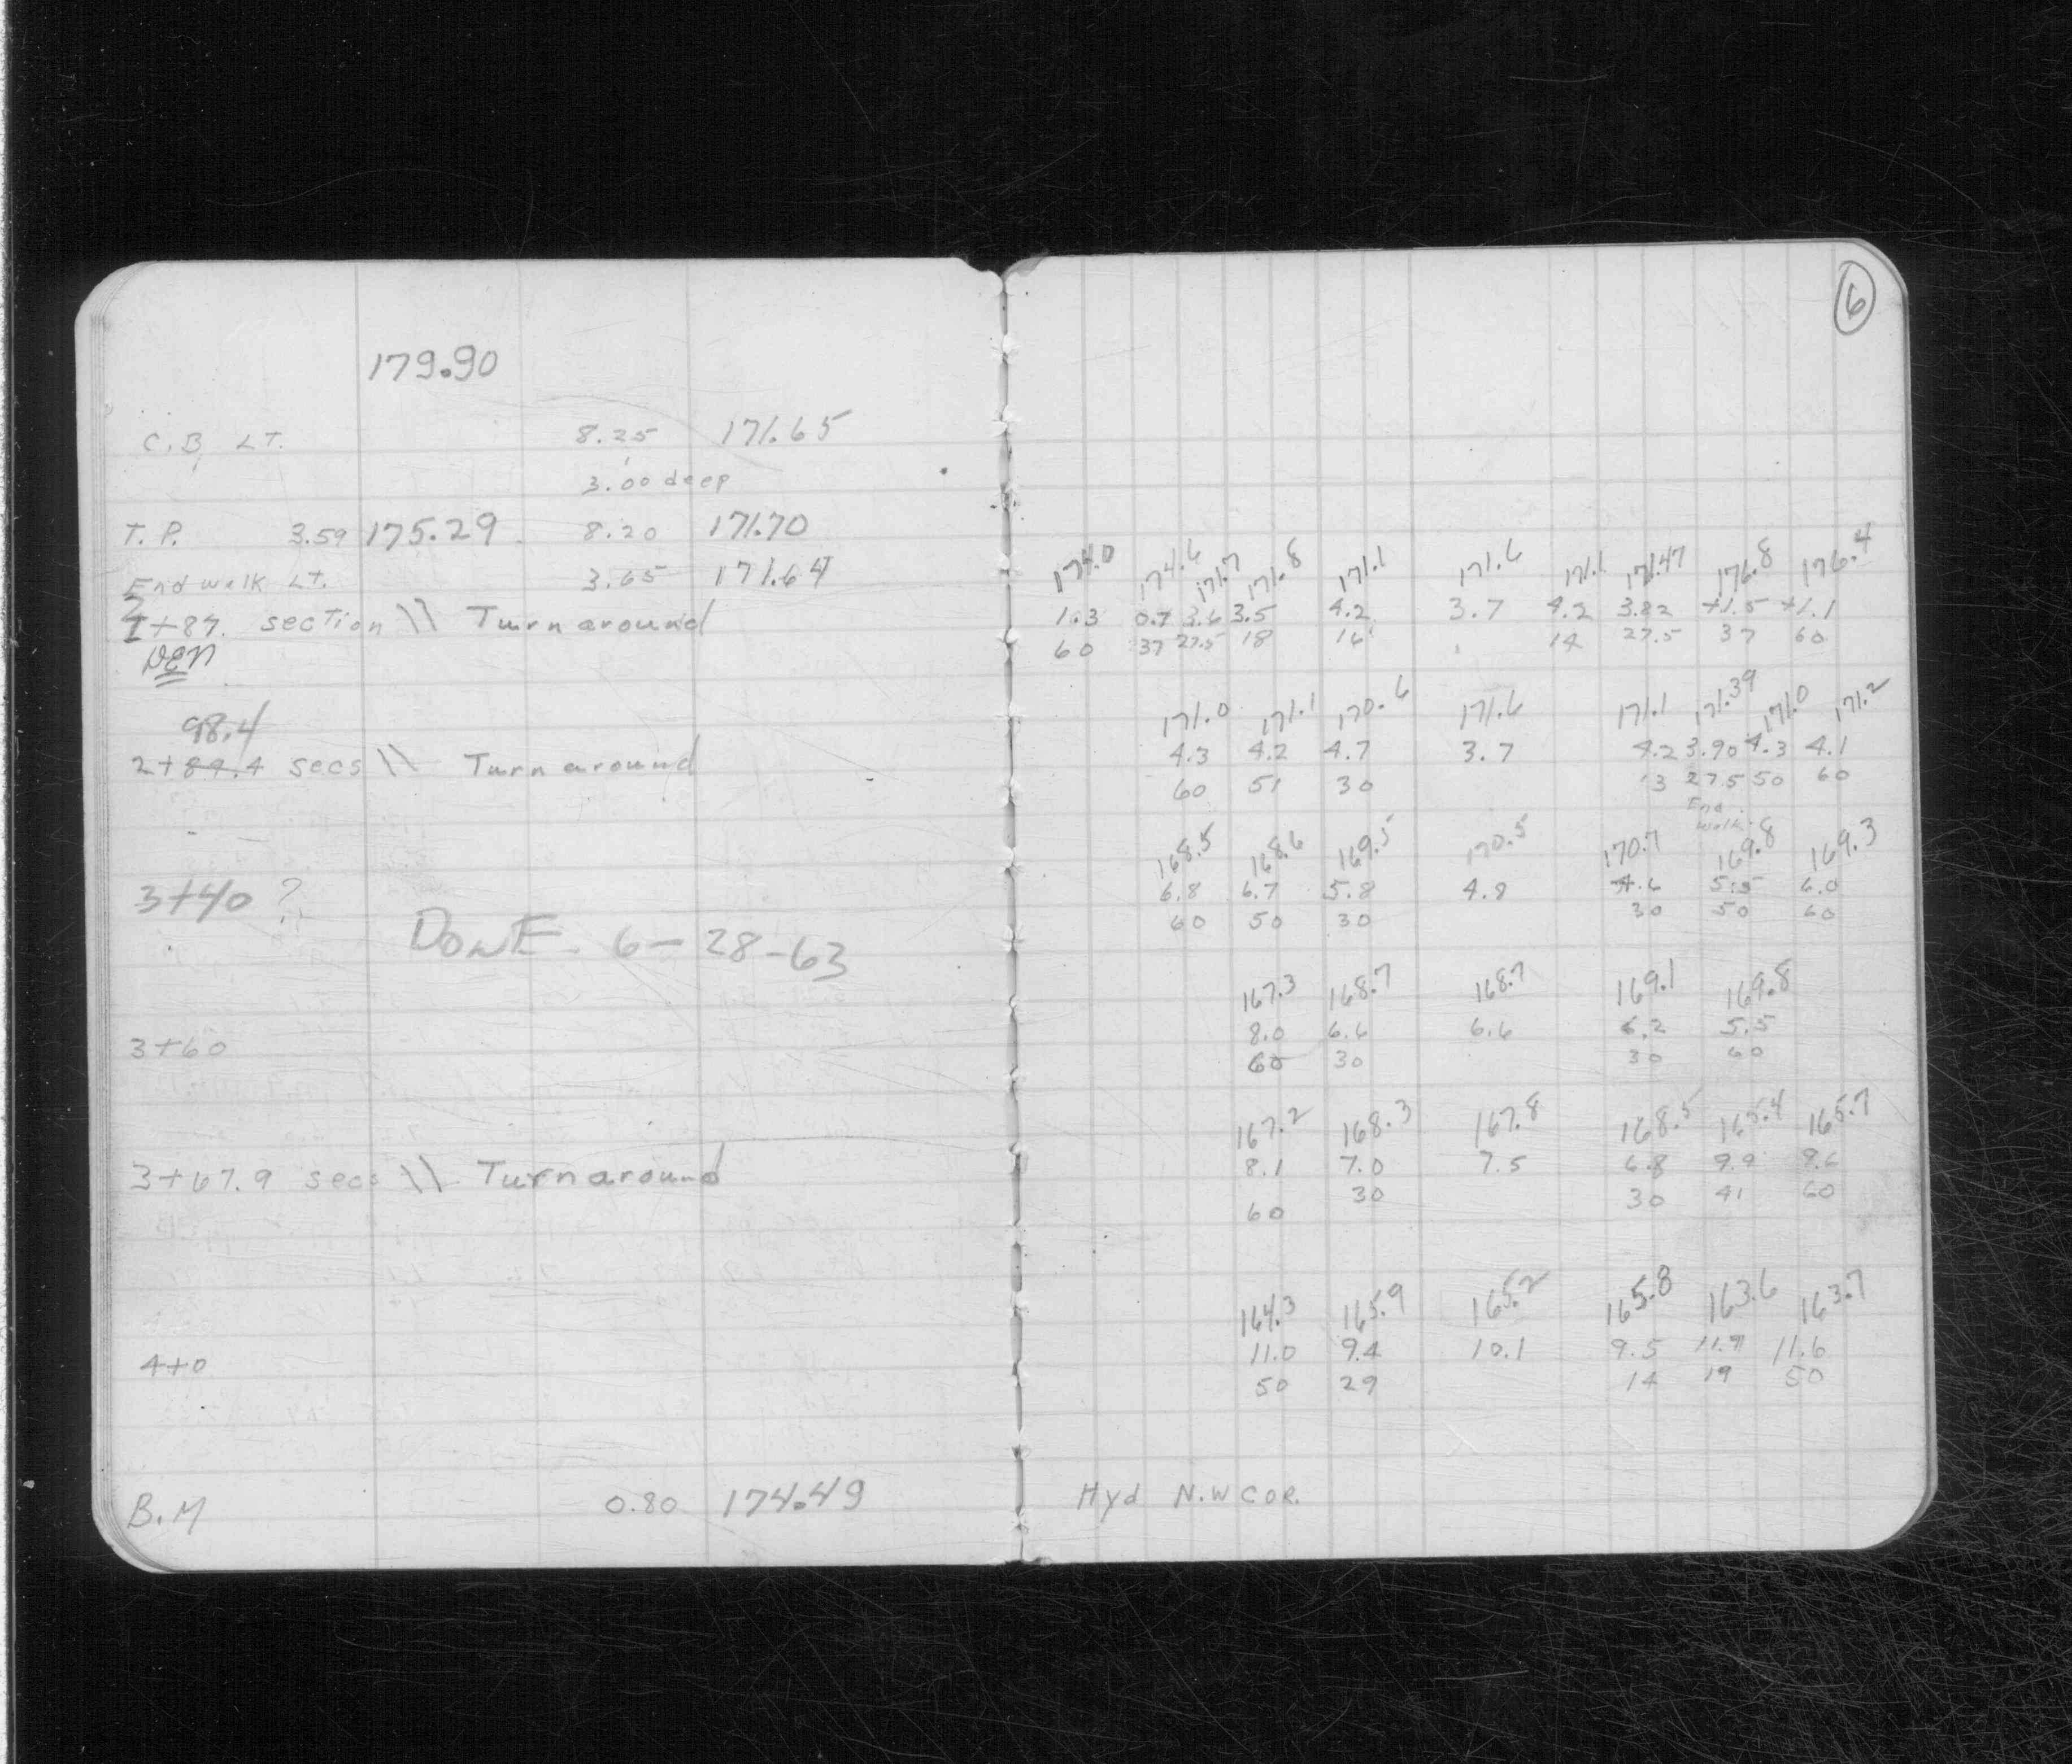 179.90
C.B. LT. 8.25 171.65
3.00 deep
T.P. 3.59 175.29 8.20 171.70
End walk Lt. 3.65 171.64
2+87. section \\ Turnaround
DEN
98.4
2+89.4 secs \\ Turnaround
3+40 ?
DONE - 6-28-63
3+60
3+67.9 secs \\ Turnaround
4+0
B.M 0.80 174.49
6
174.0 174.6 171.7 171.8 171.1 171.6 171.1 171.47 176.8 176.4
1.3 0.7 3.6 3.5 4.2 3.7 4.2 3.82 +1.5 +1.1
60 37 27.5 18 16 14 27.5 37 60
171.0 171.1 170.6 171.6 171.1 171.39 171.0 171.2
4.3 4.2 4.7 3.7 4.2 3.90 4.3 4.1
60 51 30 13 27.5 50 60
End
walk
168.5 168.6 169.5 170.5 170.7 169.8 169.3
6.8 6.7 5.8 4.8 4.6 5.5 6.0
60 50 30 30 50 60
167.3 168.7 168.7 169.1 169.8
8.0 6.6 6.6 6.2 5.5
60 30 30 60
167.2 168.3 167.8 168.5 165.4 165.7
8.1 7.0 7.5 6.8 9.9 9.6
60 30 30 41 60
164.3 165.9 165.2 165.8 163.6 163.7
11.0 9.4 10.1 9.5 11.7 11.6
50 29 14 19 50
Hyd N.W COR.